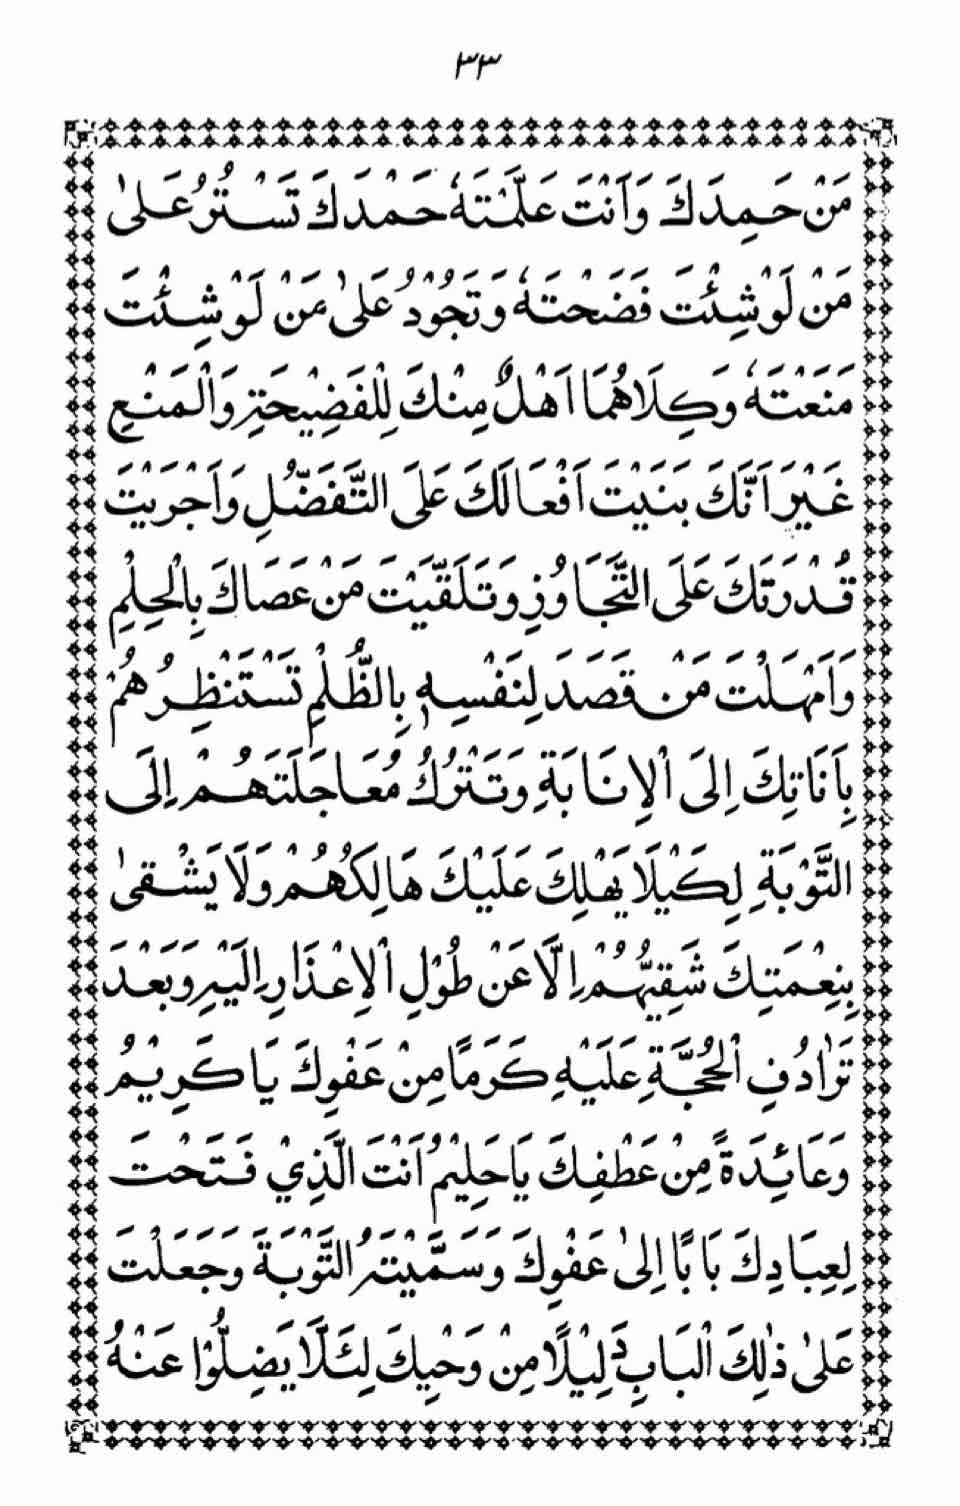 ٣٣
مَنْ حَمِدَكَ وَاَنْتَ عَلَّمْتَهٗ حَمْدَكَ تَسْتُرُ عَلىٰ
مَنْ لَوْ شِئْتَ فَضَحْتَهٗ وَتَجُوْدُ عَلىٰ مَنْ لَوْ شِئْتَ
مَنَعْتَهٗ وَكِلَاهُمَا اَهْلٌ مِنْكَ لِلْفَضِيْحَةِ وَالْمَنْعِ
غَيْرَ اَنَّكَ بَنَيْتَ اَفْعَالَكَ عَلَى التَّفَضُّلِ وَاَجْرَيْتَ
قُدْرَتَكَ عَلَى التَّجَاوُزِ وَتَلَقَّيْتَ مَنْ عَصَاكَ بِالْحِلْمِ
وَاَمْهَلْتَ مَنْ قَصَدَ لِنَفْسِهٖ بِالظُّلْمِ تَسْتَنْظِرُهُمْ
بِاَنَاتِكَ اِلَى الْاِنَابَةِ وَتَتْرُكُ مُعَاجَلَتَهُمْ اِلَى
التَّوْبَةِ لِكَيْلَا يَهْلِكَ عَلَيْكَ هَالِكُهُمْ وَلَا يَشْقىٰ
بِنِعْمَتِكَ شَقِيُّهُمْ اِلَّا عَنْ طُوْلِ الْاِعْذَارِ اِلَيْهِ وَبَعْدَ
تَرَادُفِ الْحُجَّةِ عَلَيْهِ كَرَمًا مِنْ عَفْوِكَ يَا كَرِيْمُ
وَعَائِدَةً مِنْ عَطْفِكَ يَا حَلِيْمُ اَنْتَ الَّذِيْ فَتَحْتَ
لِعِبَادِكَ بَابًا اِلىٰ عَفْوِكَ وَسَمَّيْتَهُ التَّوْبَةَ وَجَعَلْتَ
عَلىٰ ذٰلِكَ الْبَابِ دَلِيْلًا مِنْ وَحْيِكَ لِئَلَّا يَضِلُّوْا عَنْهُ